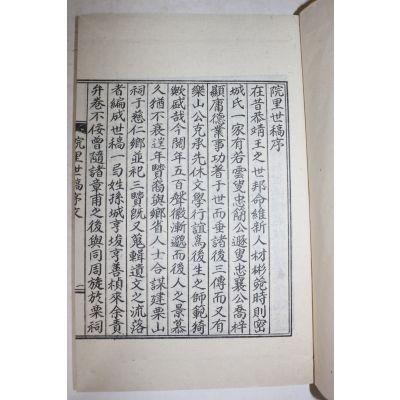 院里世稿序
在昔恭靖王之世邦命維新人材彬菀時則密
城氏一家有若雲叟忠簡公遯叟忠襄公喬梓
顯庸德業事功著于世而垂諸後三傳而又有
樂山公克承先休文學行誼爲後生之師範猗
歟盛哉今閱年五百聲徽漸邈而後人之景慕
久猶不衰逞年贊裔與鄉省人士合謀建栗山
祠于慈仁鄉並祀三賢旣又蒐輯遺文之流落
者編成世稿一局姓孫城亨埈亨善楨來余責
弁卷不侫曾隨諸章甫之後與同周旋於栗祠
院里世稿序文